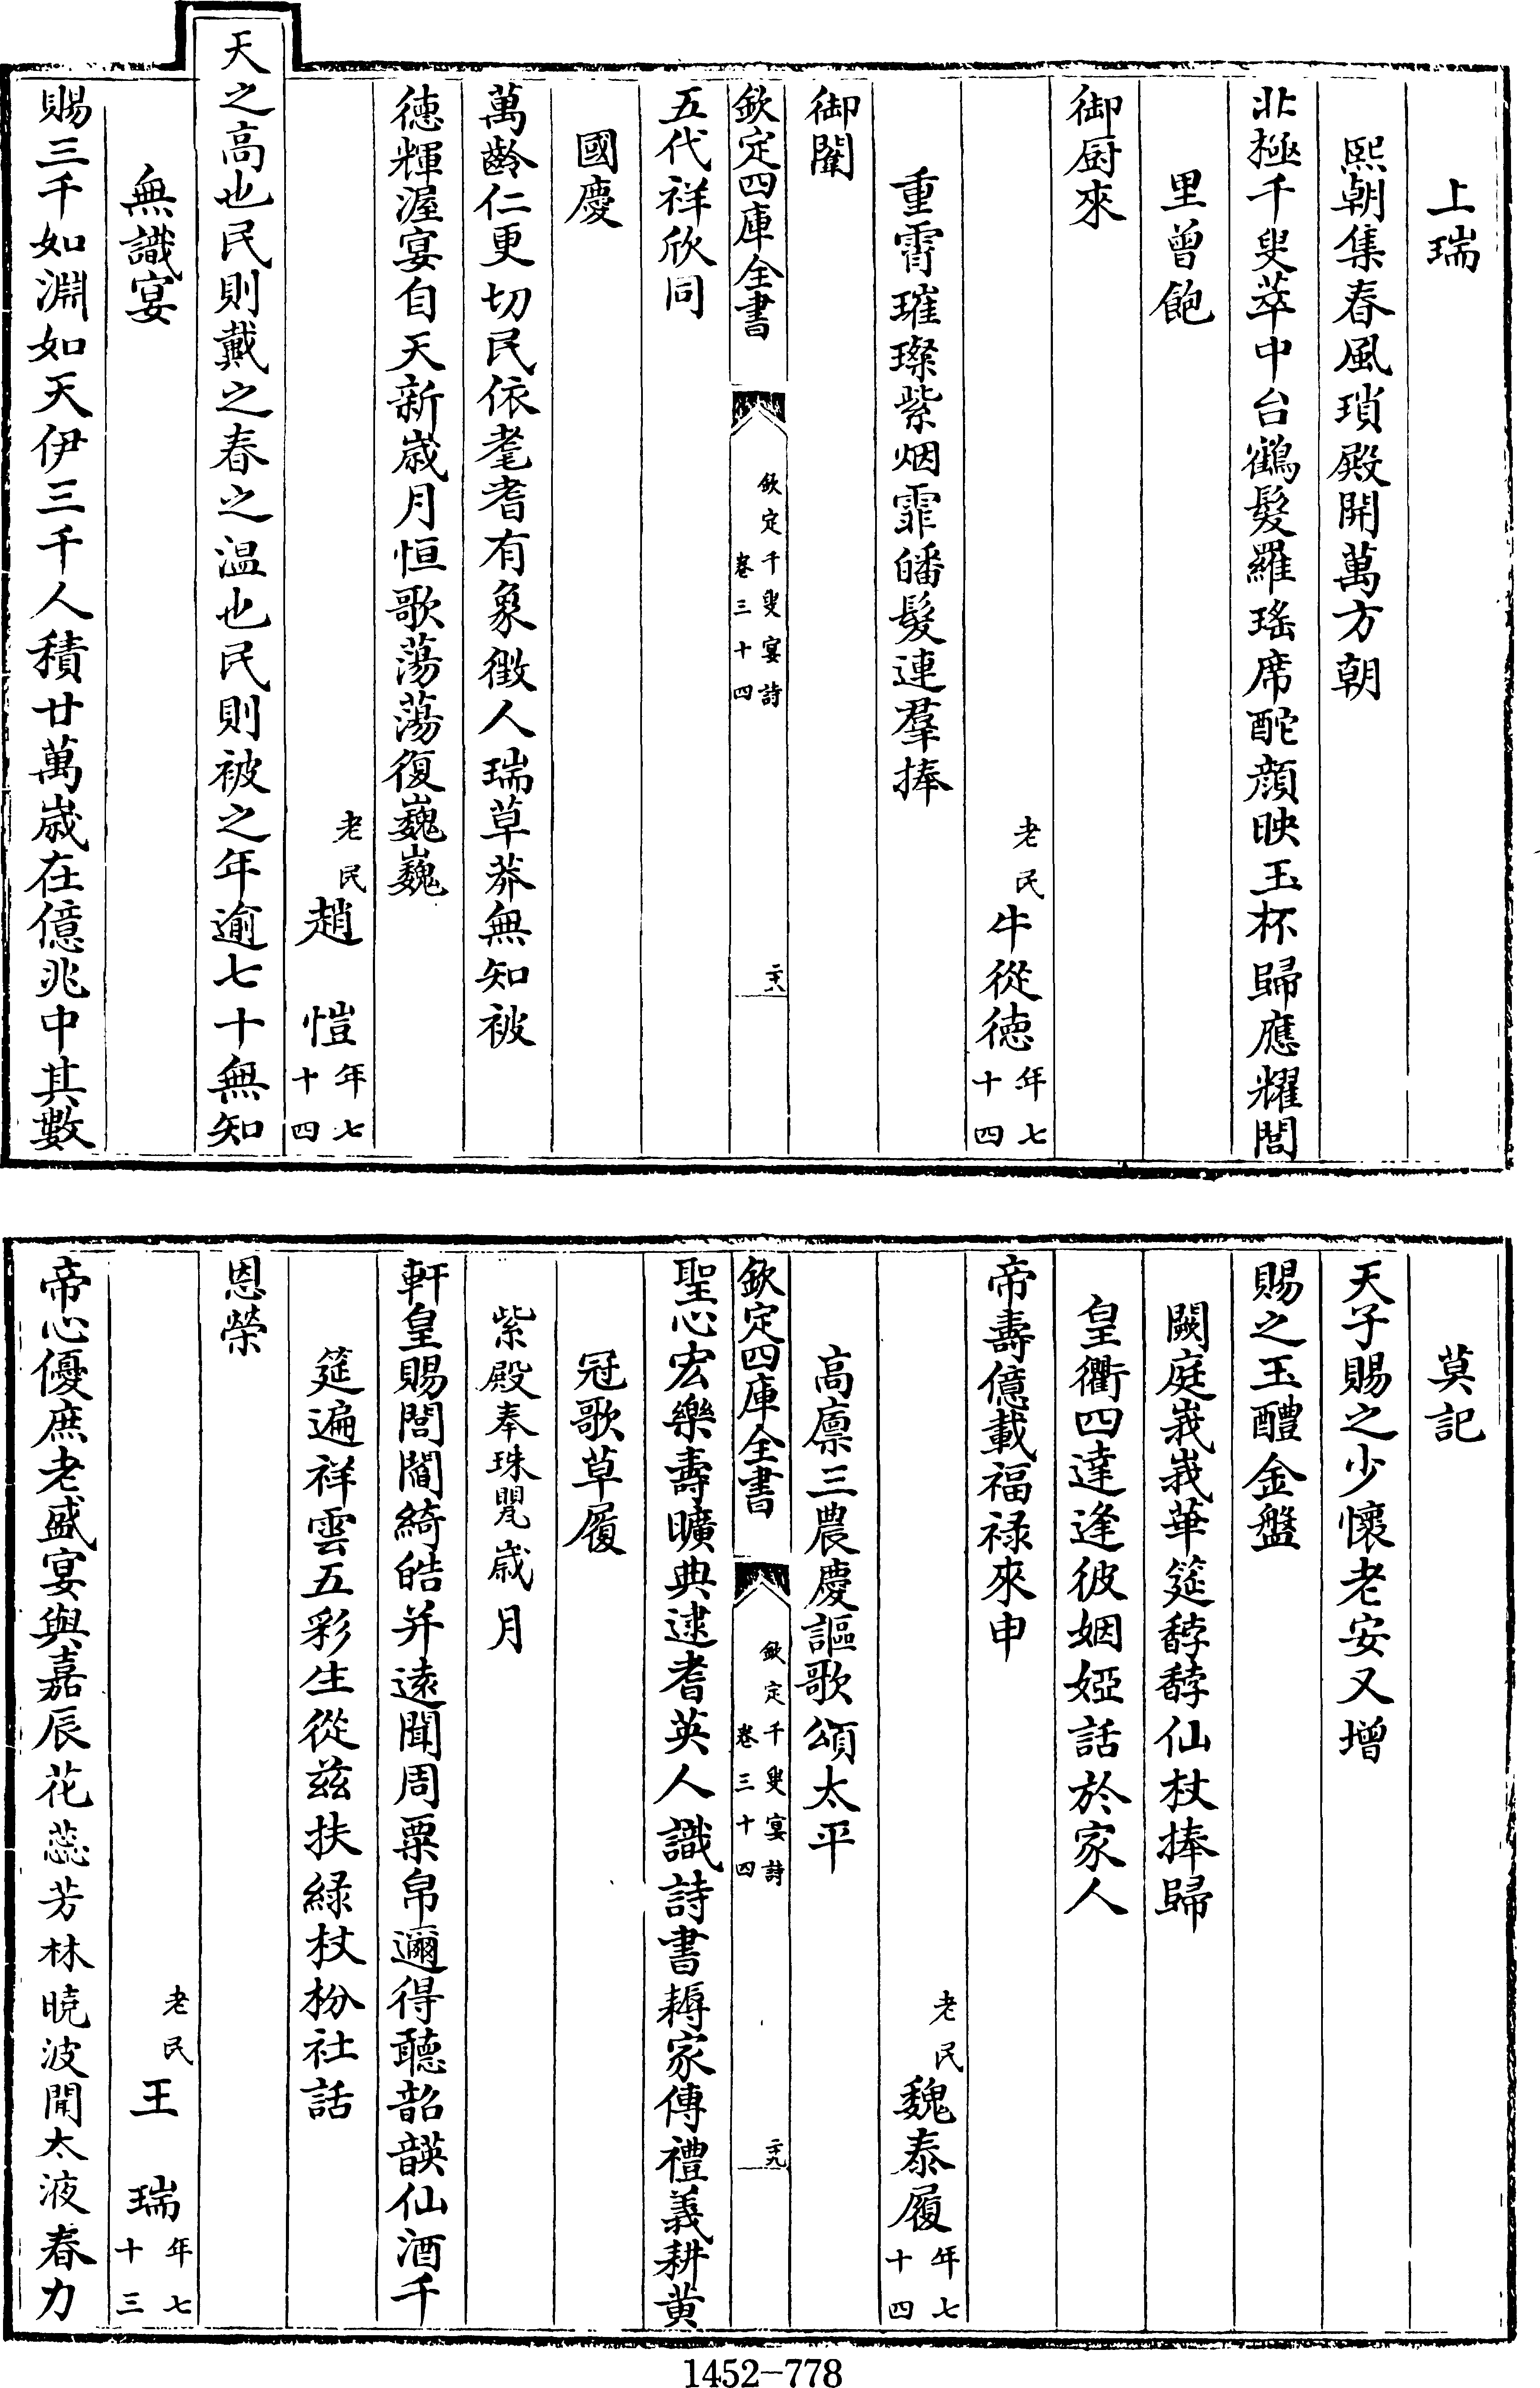 上瑞
熙朝集春風瑣殿開萬方朝
北極千叟萃中台鶴髮羅瑤席酡顔映玉杯歸應耀閭
里曾飽
御厨來
老民牛從徳年七十四
重霄璀璨紫烟霏皤髮連羣捧
御闈
欽定四庫全書
欽定千叟宴詩
卷三十四
二十八
五代祥欣同
國慶
萬齡仁更切民依耄耆有象徴人瑞草莽無知被
徳輝渥宴自天新歳月恒歌蕩蕩復巍巍
老民趙愷年七十四
天之高也民則戴之春之温也民則被之年逾七十無知
無識宴
賜三千如淵如天伊三千人積廿萬歳在億兆中其數
莫記
天子賜之少懷老安又增
賜之玉醴金盤
闕庭峩峩華筵馞馞仙杖捧歸
皇衢四達逢彼姻婭話於家人
帝壽億載福禄來申
老民魏泰履年七十四
高廪三農慶謳歌頌太平
欽定四庫全書
欽定千叟宴詩
卷三十四
二十九
聖心宏樂壽曠典逮耆英人識詩書耨家傳禮義耕黄
冠歌草履
紫殿奉珠覭歳月
軒皇賜閭閻綺皓并遠聞周粟帛邇得聽韶韺仙酒千
筵遍祥雲五彩生從兹扶緑杖枌社話
恩榮
老民王瑞年七十三
帝心優庶老盛宴與嘉辰花蕊芳林暁波開太液春力
1452-778